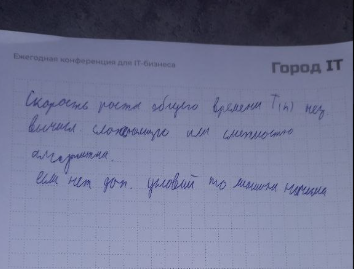 Ежегодная конференция для IT-бизнеса
Город IT
Скорость роста общего времени T(n) наз.
вычисл. сложностью или сложностью
алгоритма.
если нет доп. условий то машина